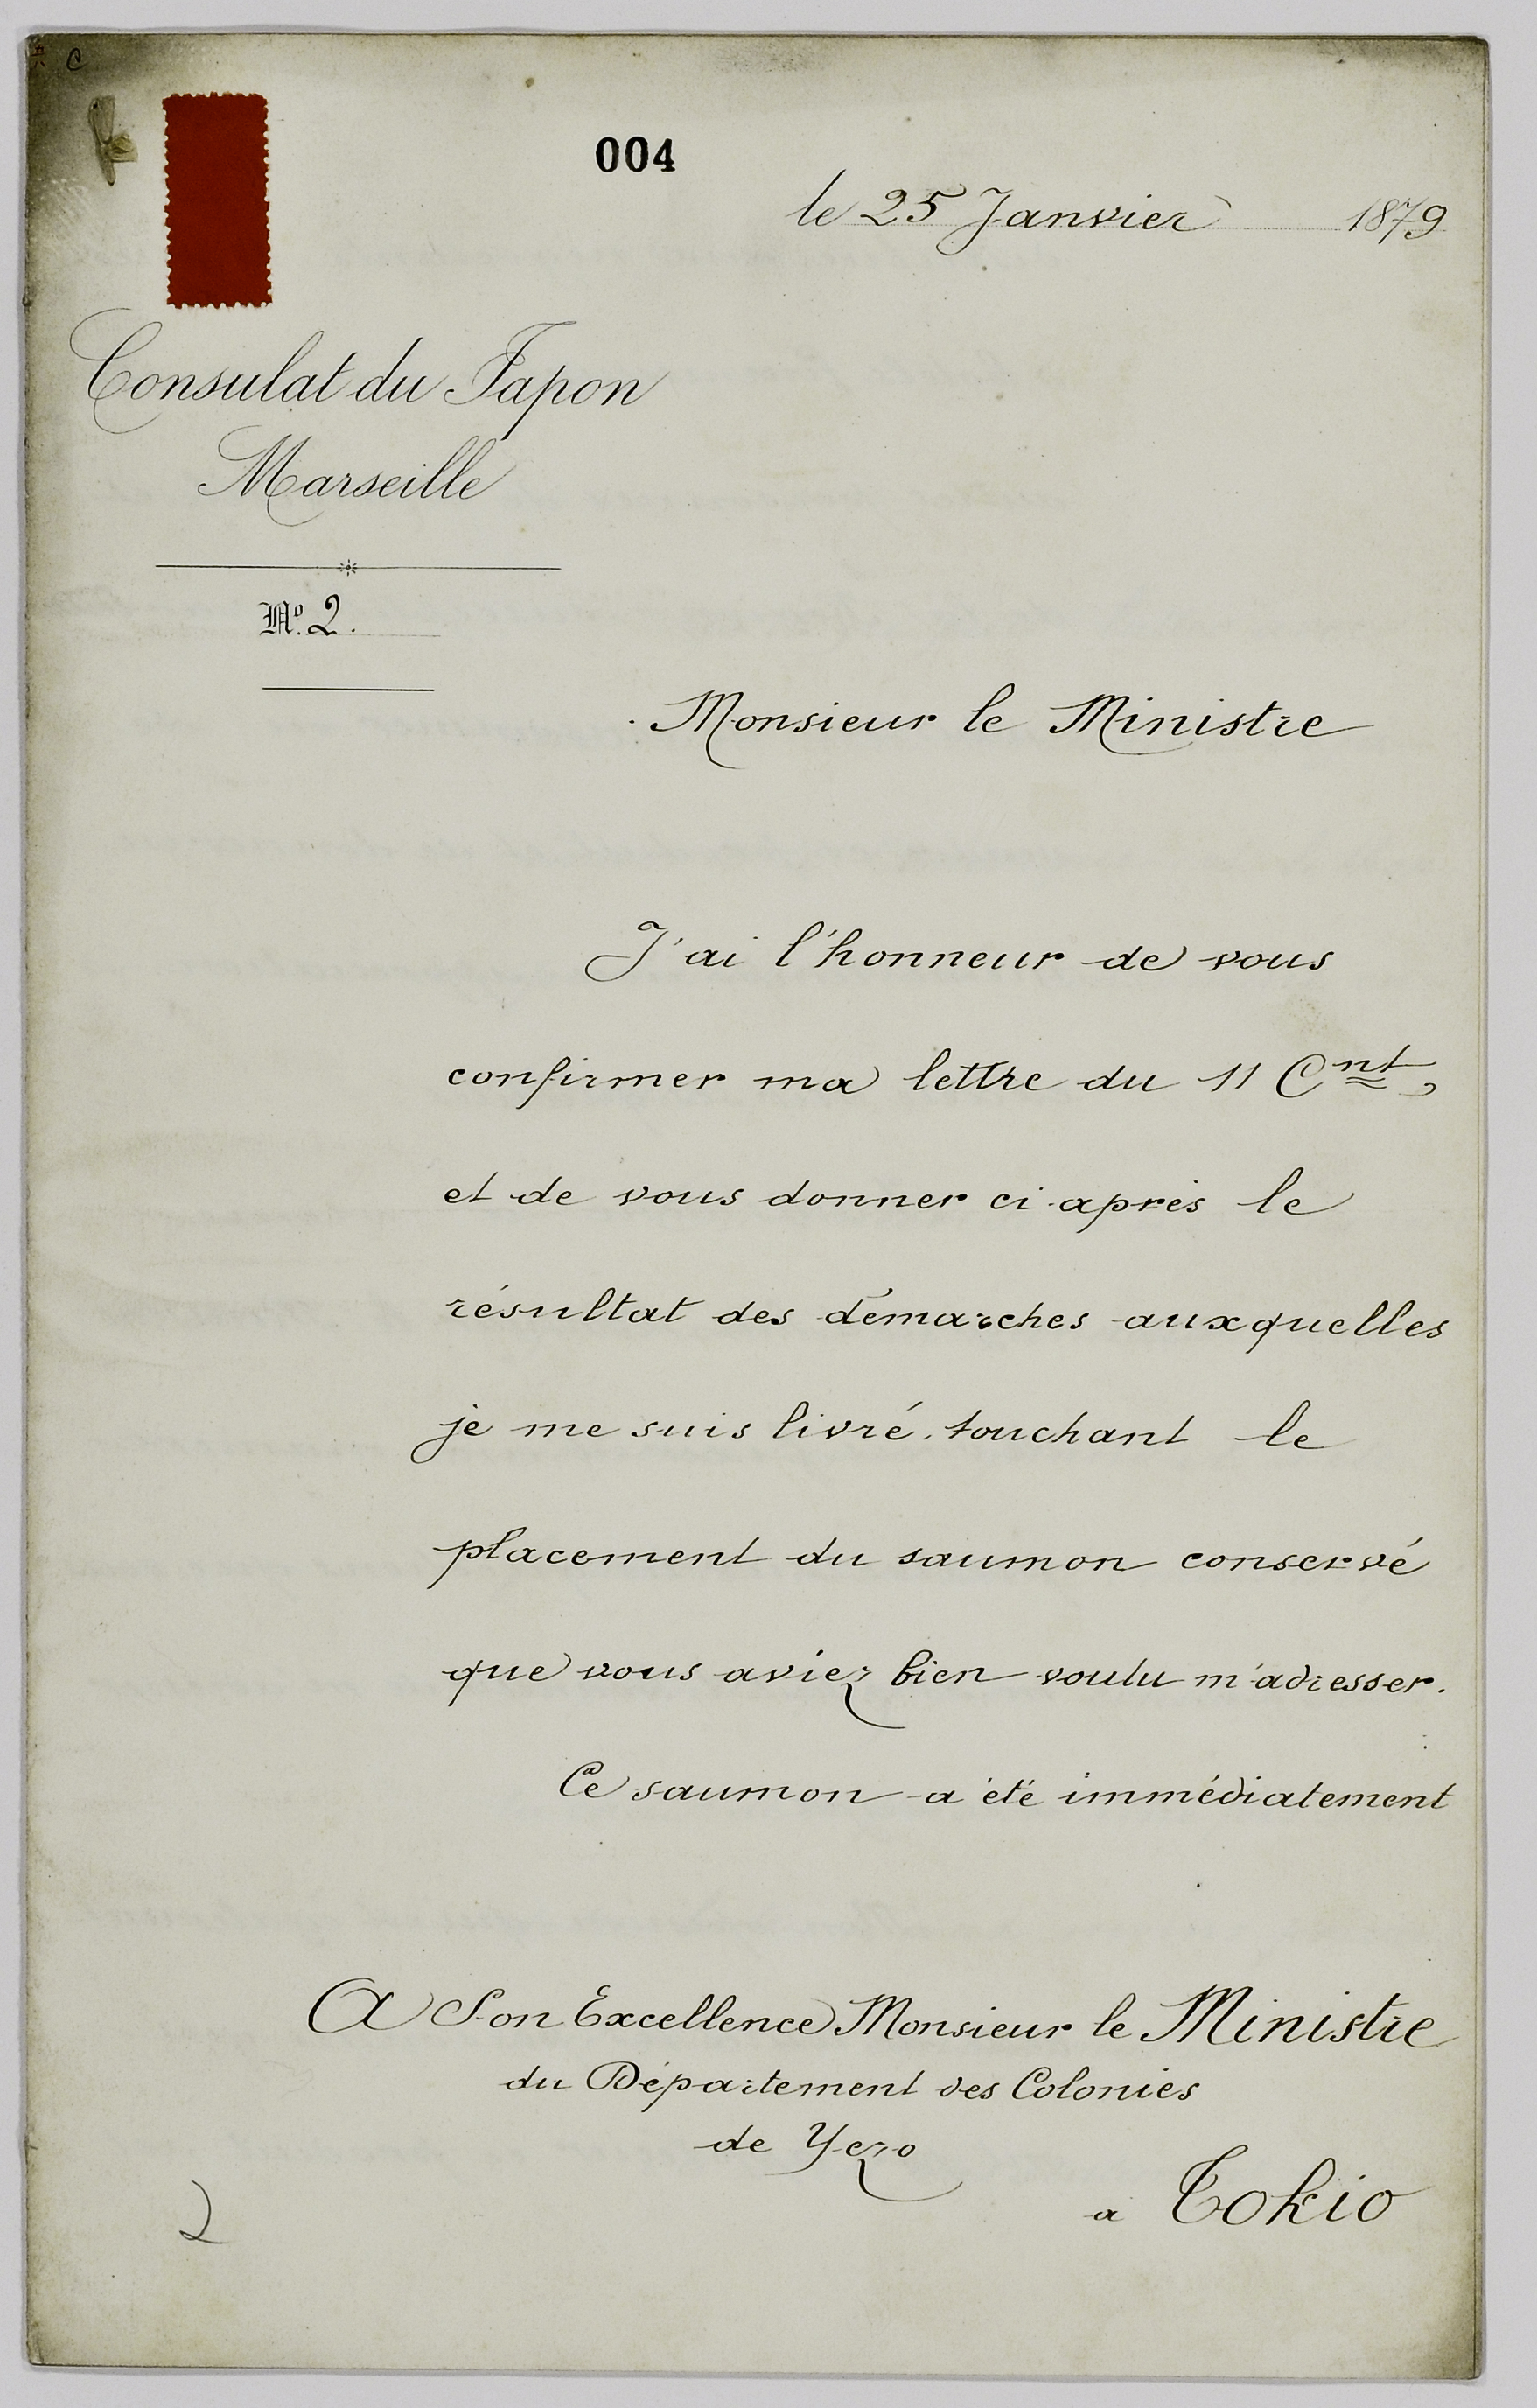 004
le 25 Janvier 1879
Consulat du Japon
Marseille
No. 2.
Monsieur le Ministre
J'ai l'honneur de vous
confirmer ma lettre du 11 Cnt,
et de vous donner ci-après le
résultat des démarches auxquelles
je me suis livré, touchant le
placement du saumon conservé
que vous aviez bien voulu m'adresser.
Ce saumon a été immédiatement
A Son Excellence Monsieur le Ministre
du Département des Colonies
de Yezo
a Tokio
2